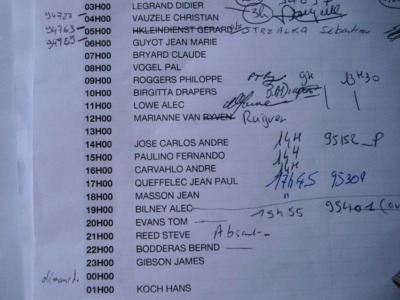 03H00 LEGRAND DIDIER
94727 04H00 VAUZELE CHRISTIAN 13h
94763 05H00 HKLEINDIENST GERARD STRZALKA Sebastien
94985 06H00 GUYOT JEAN MARIE
07H00 BRYARD CLAUDE
08H00 VOGEL PAL
09H00 ROGGERS PHILOPPE 9H 13H30
10H00 BIRGITTA DRAPERS
11H00 LOWE ALEC
12H00 MARIANNE VAN RYVEN Ruijven
13H00
14H00 JOSE CARLOS ANDRE 14H 95152 P
15H00 PAULINO FERNANDO 14H
16H00 CARVAHLO ANDRE 14H
17H00 QUEFFELEC JEAN PAUL 17H45 95309
18H00 MASSON JEAN "
19H00 BILNEY ALEC 19H55 95401
20H00 EVANS TOM
21H00 REED STEVE Absent
22H00 BODDERAS BERND
23H00 GIBSON JAMES
dimanch. 00H00
01H00 KOCH HANS